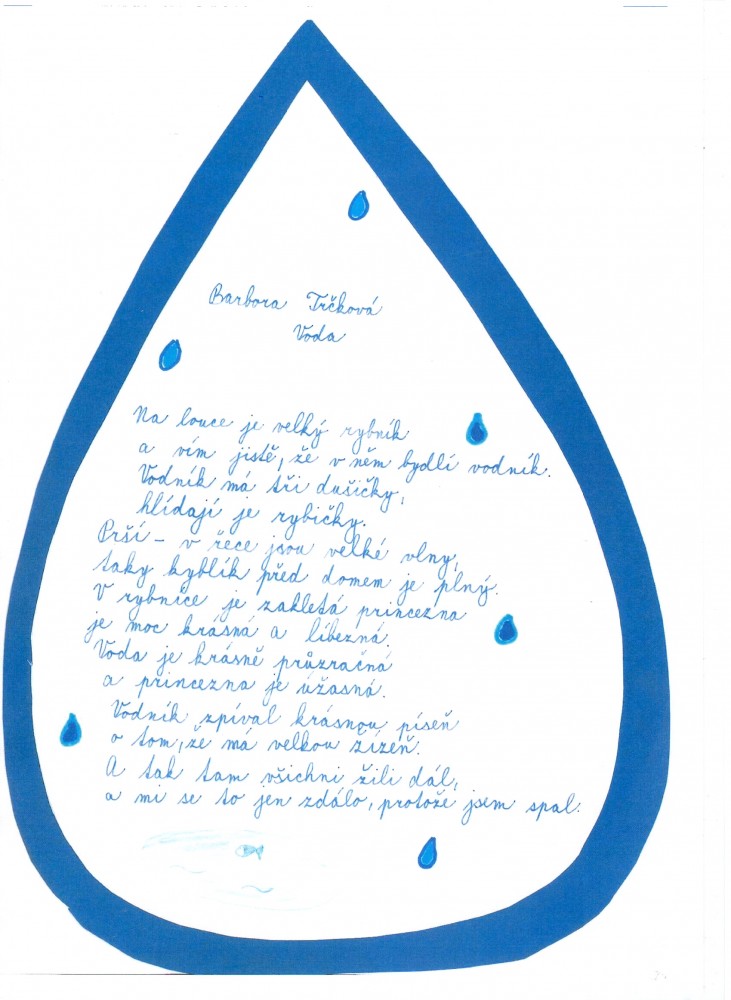 Barbora Trčková
Voda
Na louce je velký rybník
a vím jistě, že v něm bydlí vodník.
Vodník má tři dušičky,
hlídají je rybičky.
Prší – v řece jsou velké vlny,
taky kyblík před domem je plný.
V rybníce je zakletá princezna
je moc krásná a líbezná.
Voda je krásně průzračná
a princezna je úžasná.
Vodník zpíval krásnou píseň
o tom, že má velkou žízeň.
A tak tam všichni žili dál,
a mi se to jen zdálo, protože jsem spal.